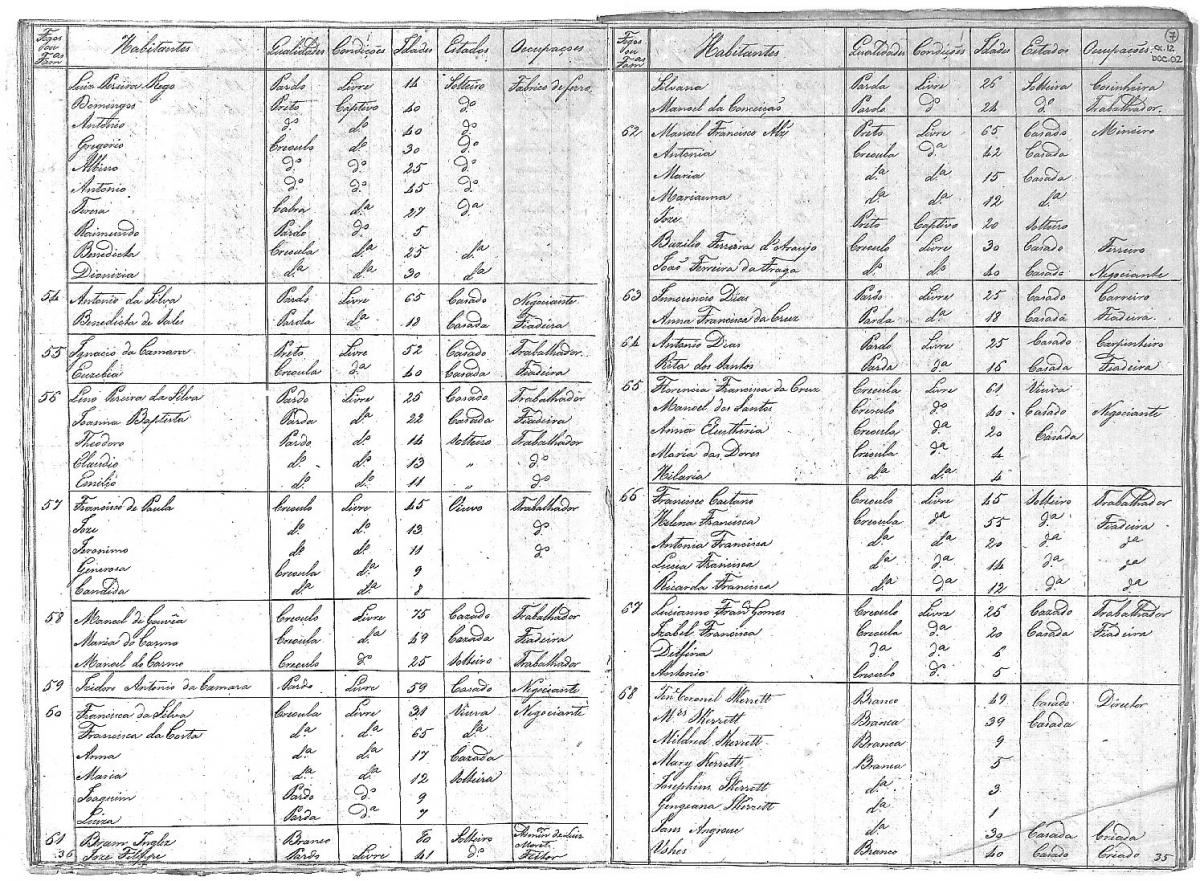 Fogos ou Fam.as Habitantes Qualidades Condições Idades Estados Occupações
Luis Pereira Rego Pardo Livre 14 Solteiro Fabrico de ferro
Domingos Preto Captivo 40 d.o
Antonio d.o d.o 40 d.o
Gregorio Creoulo d.o 30 d.o
Albino d.o d.o 25 d.o
Antonio d.o d.o 45 d.o
Teresa Cabra d.a 27 d.a
Raimundo Pardo d.o 5
Benedicta Creoula d.a 25 d.a
Dionizia d.a d.a 30 d.a
54 Antonio da Silva Pardo Livre 65 Casado Negociante
Benedicta de Sales Parda d.a 18 Casada Fiadeira
55 Ignacio da Camara Preto Livre 52 Casado Trabalhador
Euzebia Creoula d.a 40 Casada Fiadeira
56 Lino Pereira da Silva Pardo Livre 25 Casado Trabalhador
Joanna Baptista Parda d.a 22 Casada Fiadeira
Theodoro Pardo d.o 14 Solteiro Trabalhador
Claudio d.o d.o 13 " d.o
Emilio d.o d.o 11 " d.o
57 Francisco de Paula Creoulo Livre 45 Viuvo Trabalhador
Joze d.o d.o 13 d.o
Jeronimo d.o d.o 11 d.o
Generosa Creoula d.a 9
Candida d.a d.a 8
58 Manoel de Gouvêa Creoulo Livre 75 Cazado Trabalhador
Maria do Carmo Creoula d.a 49 Cazada Fiadeira
Manoel do Carmo Creoulo d.o 25 Solteiro Trabalhador
59 Izidoro Antonio da Camara Pardo Livre 59 Casado Negociante
60 Francisca da Silva Creoula Livre 31 Viuva Negociante
Francisca da Costa d.a d.a 65 d.a
Anna d.a d.a 17 Cazada
Maria d.a d.a 12 Solteira
Joaquim Pardo d.o 9
Luiza Parda d.a 7
61 Bram Inglez Branco 80 Solteiro
36 Joze Filippe Pardo Livre 41 d.o Feitor
7
CX.12
DOC.02
Fogos ou Fam.as Habitantes Qualidades Condições Idades Estados Occupações
Silvana Parda Livre 26 Solteira Cosinheira
Manoel da Conceição Pardo d.o 24 d.o Trabalhador
62 Manoel Francisco Preto Livre 65 Casado Mineiro
Antonia Creoula d.a 42 Casada
Maria d.a d.a 15 Casada
Marianna d.a d.a 12 d.a
Joze Preto Captivo 20 Solteiro
Bazilio Ferreira d'Araujo Creoulo Livre 30 Casado Ferreiro
João Ferreira da Fraga d.o d.o 40 Casado Negociante
63 Innocencio Dias Pardo Livre 25 Casado Carreiro
Anna Francisca da Cruz Parda d.a 18 Casada Fiadeira
64 Antonio Dias Pardo Livre 25 Casado Carpinheiro
Rita dos Santos Parda d.a 16 Casada Fiadeira
65 Florencia Francisca da Cruz Creoula Livre 61 Viuva
Manoel dos Santos Creoulo d.o 40 Casado Negociante
Anna Eleutheria Creoula d.a 20 Casada
Maria das Dores Creoula d.a 4
Hilaria d.a d.a 4
66 Francisco Caetano Creoulo Livre 45 Solteiro Trabalhador
Helena Francisca Creoula d.a 55 d.a Fiadeira
Antonia Francisca d.a d.a 20 d.a d.a
Luzia Francisca d.a d.a 14 d.a d.a
Ricarda Francisca d.a d.a 12 d.a d.a
67 Lucianno Fran.co Gomes Creoulo Livre 25 Cazado Trabalhador
Izabel Francisca Creoula d.a 20 Casada Fiadeira
Delfina d.a d.a 6
Antonio Creoulo d.o 5
68 Ten.e Coronel Skerrett Branco 49 Casado Director
M.rs Skerrett Branca 39 Casada
Mildred Skerrett Branca 9
Mary Skerrett Branca 5
Josephine Skerrett d.a 3
Georgeana Skerrett d.a 1
d.a 30 Casada Criada
Branco 40 Casado Criado 35